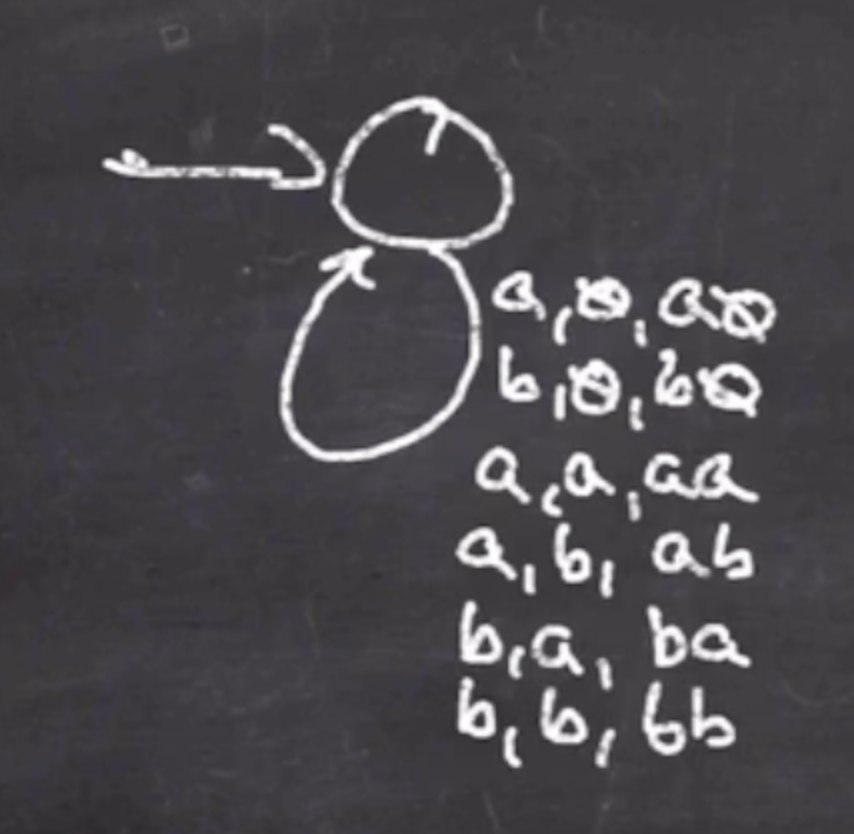 a,∅,a∅
b,∅,b∅
a,a,aa
a,b,ab
b,a,ba
b,b,bb